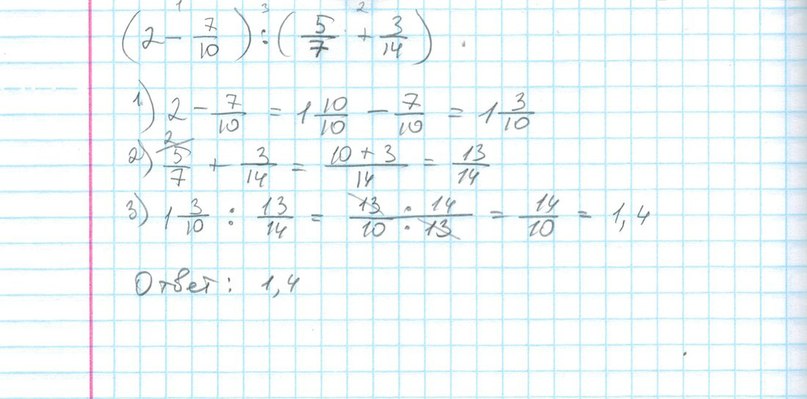 (2 - 7/10) : (5/7 + 3/14)
1) 2 - 7/10 = 1 10/10 - 7/10 = 1 3/10
2) 5/7 + 3/14 = (10 + 3)/14 = 13/14
3) 1 3/10 : 13/14 = (13 · 14)/(10 · 13) = 14/10 = 1,4
Ответ: 1,4